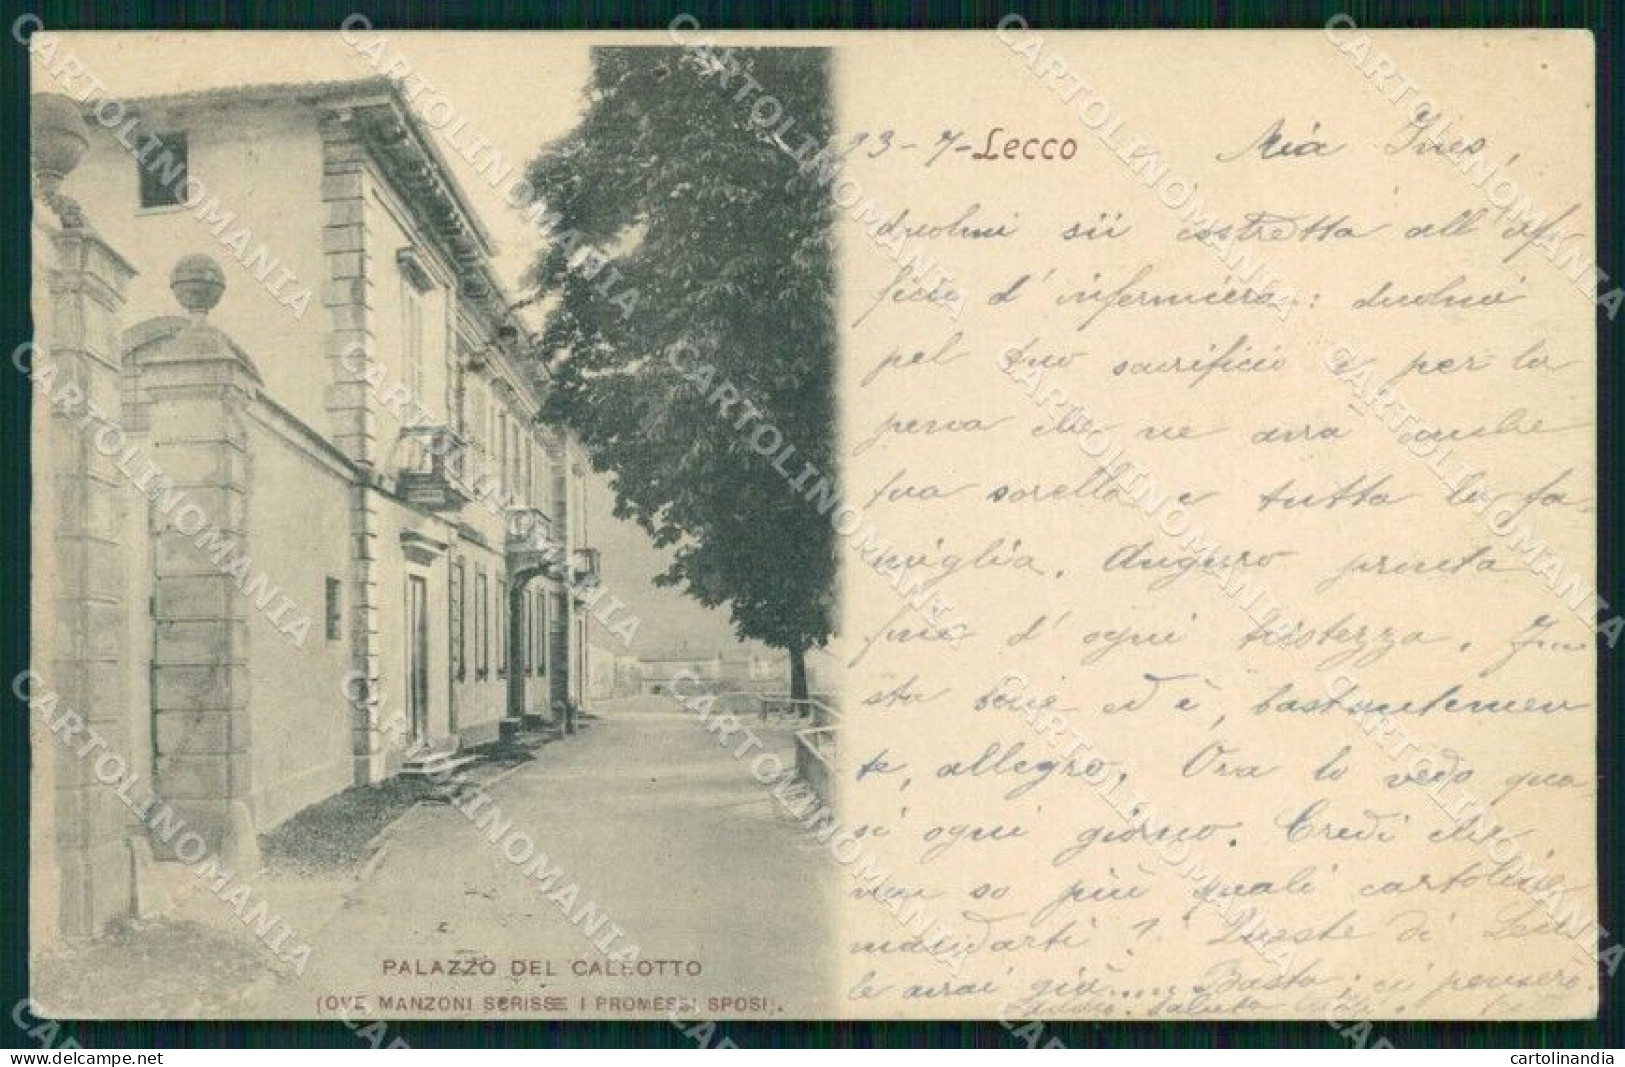 23-7-Lecco Mia Ines,
duolmi sii costretta all'uf-
ficio d'infermiera: duolmi
pel tuo sacrificio e per la
pena che ne avrà anche
tua sorella e tutta la fa-
miglia. Auguro pronta
fine d'ogni tristezza.
sta bene ed è, bastantemen
te, allegro. Ora lo vedo qua
si ogni giorno. Credi che
non so più quali cartoline
mandarti? Queste di Lecco
le avrai già.... Basta; ci penserò.
saluta
PALAZZO DEL CALEOTTO
(OVE MANZONI SCRISSE I PROMESSI SPOSI).
CARTOLINOMANIA
cartolinandia